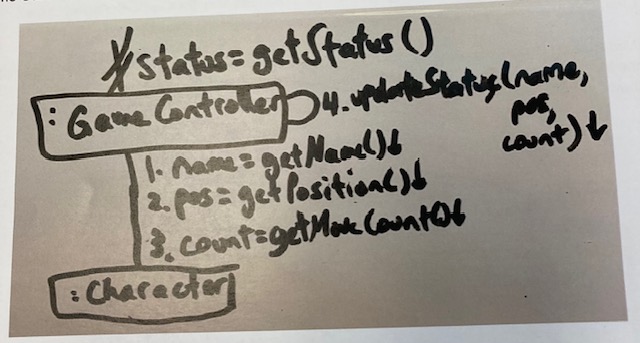 status=getStatus()
:GameController
4.updateStatus(name,
pos,
count)↓
1. name=getName()↓
2. pos=getPosition()↓
3. count=getMoveCount()↓
:Character